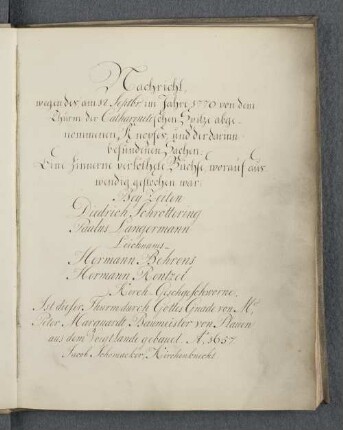 Nachricht,
wegen des am 18 Septbr im Jahre 1770 von dem
Thurm der Catharineschen Spitze abge-
nommenen Knopfes, und der darinn
befundenen Sachen.
Eine zinnerne verlöthete Büchse, worauf aus
wendig gestochen war:
Bey Zeiten
Diedrich Schrottering
Paulus Langermann
Leichnams-
Hermann Behrens
Hermann Rentzel
Kirch-Geschworne,
Ist dieser Thurm durch Gottes Gnade von Mr.
Peter Marquardt Baumeister von Plauen
aus dem Voigtlande gebauet. Ao. 1657
Jacob Schomacker, Kirchenknecht